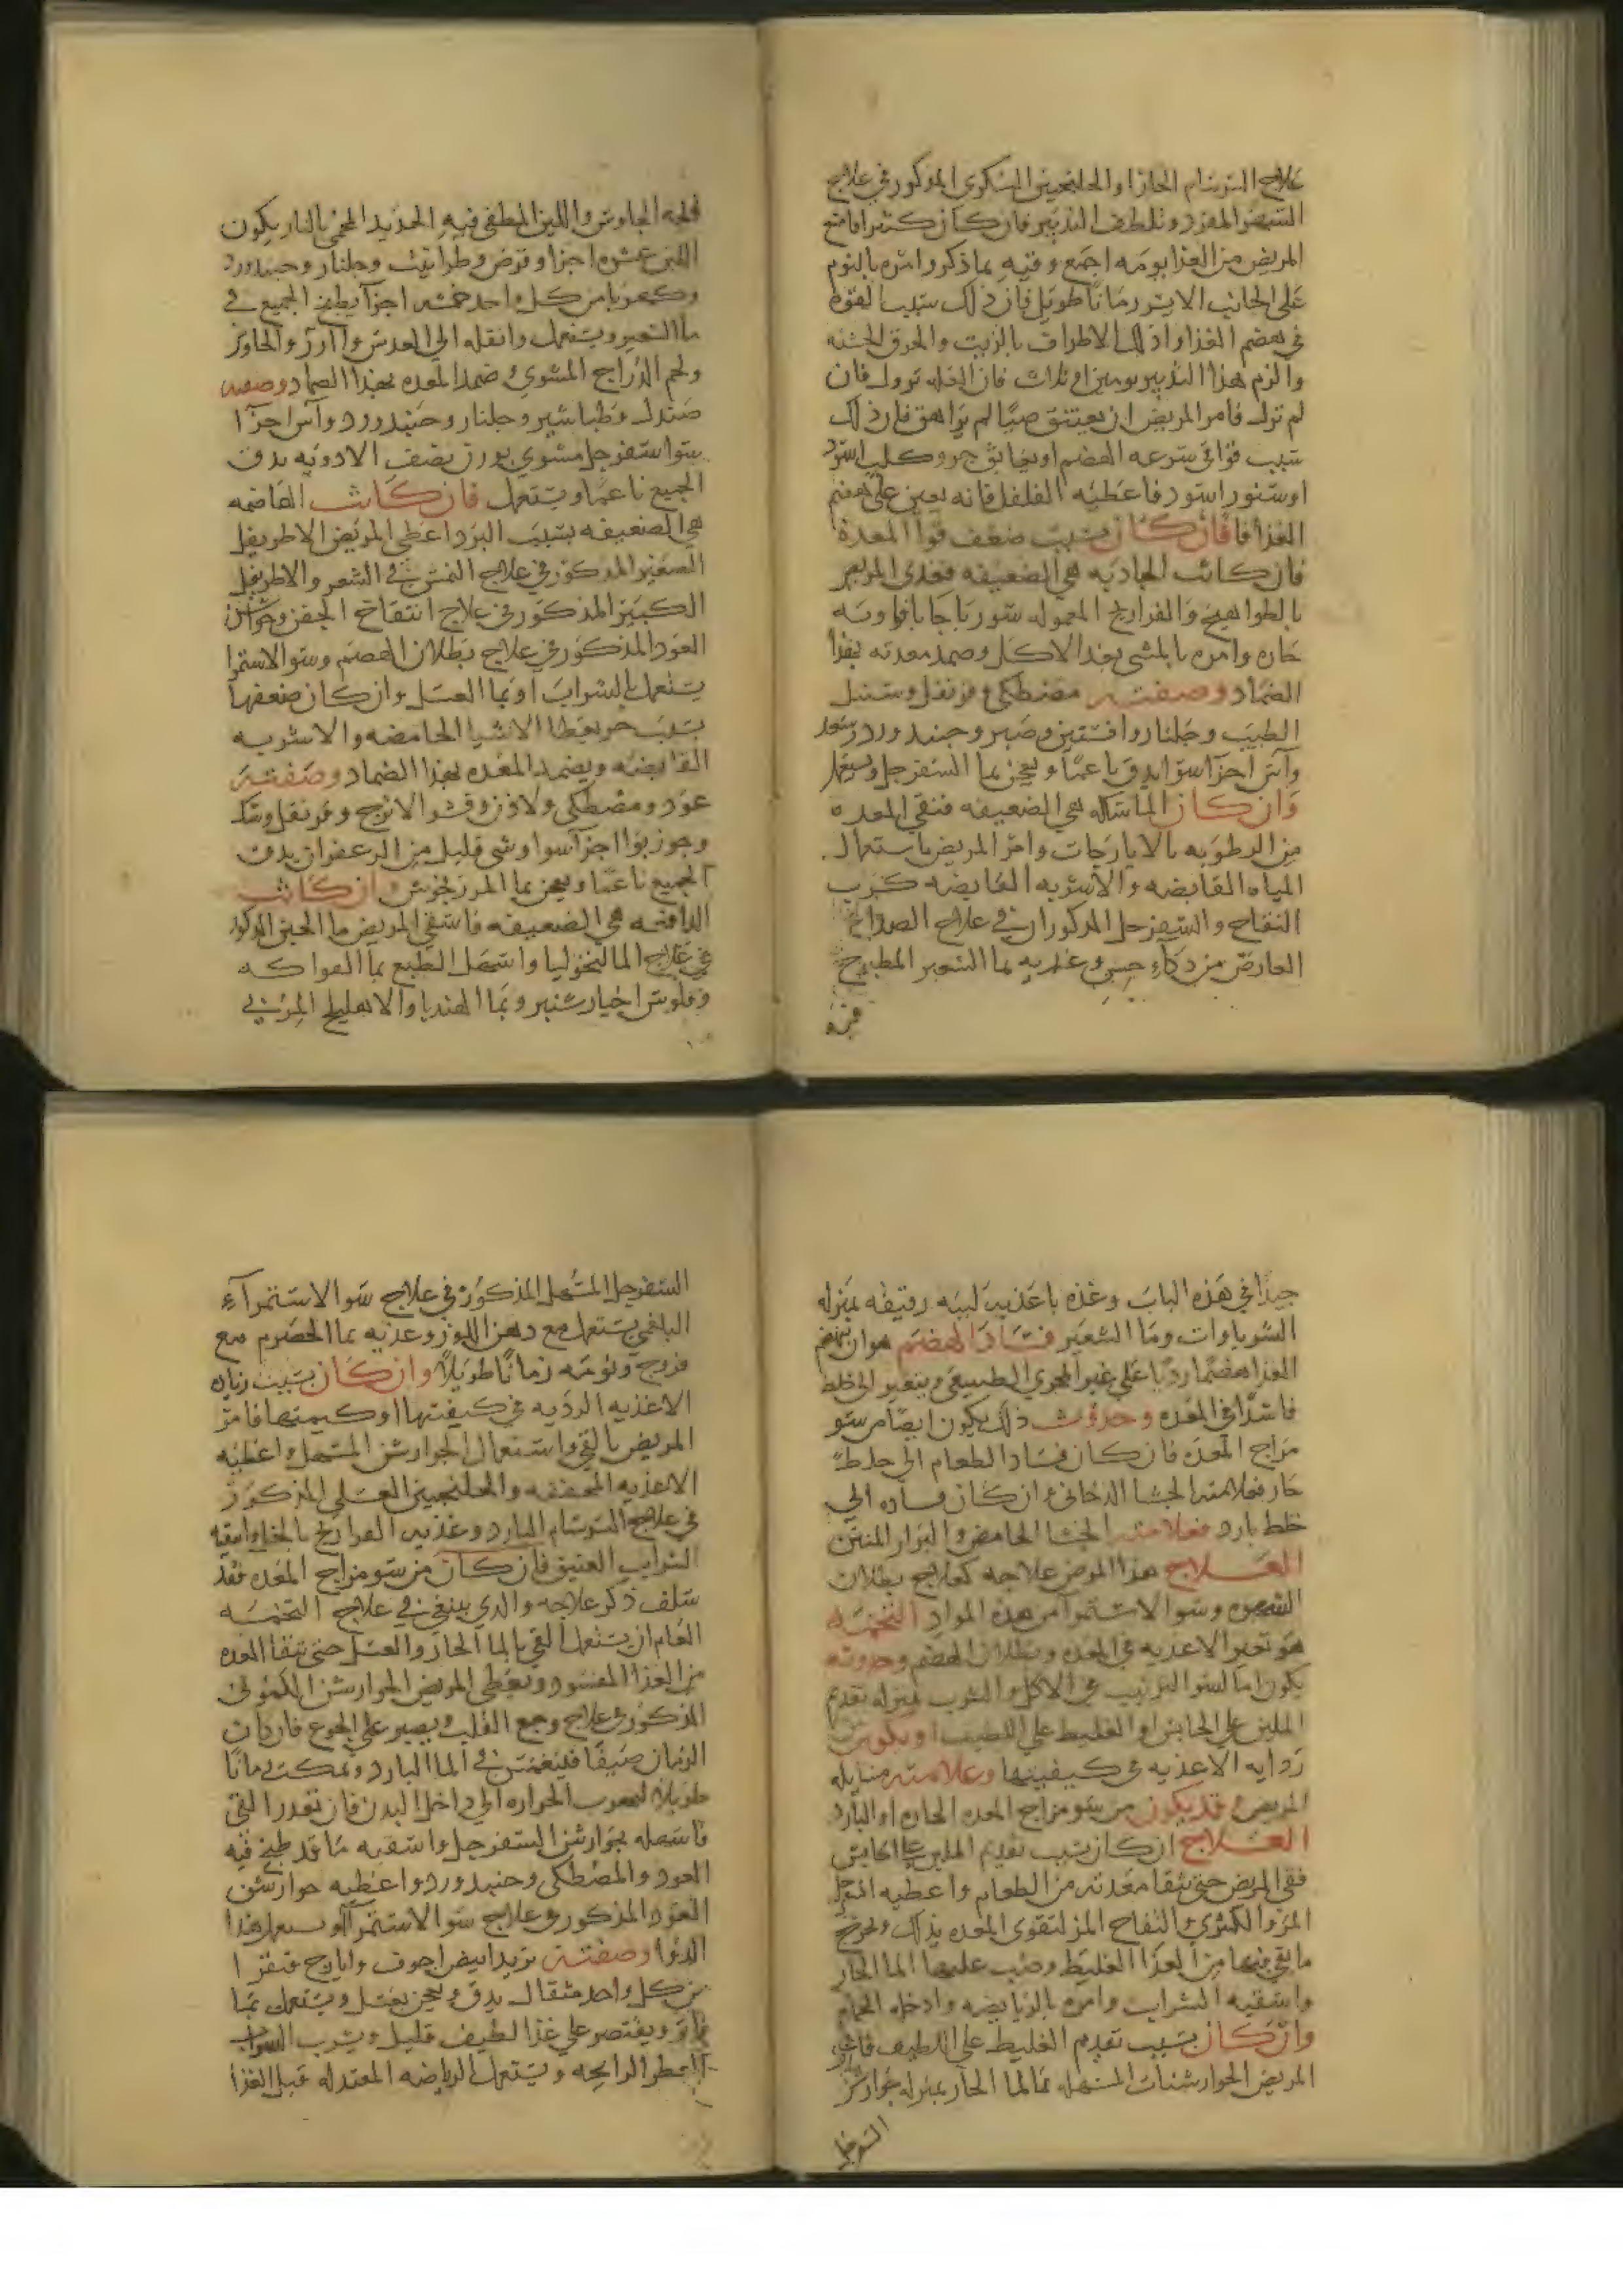 علاج السرسام الحار او الجلنجبين السكري المذكور في علاج
السهر المفرد وتلطف التدبير فان كان كثيرا فامنع
المريض من الغذا يومه اجمع وقيه بما ذكر وامره بالنوم
على الجانب الايسر زمانا طويل فان ذلك سببا لقوة
في هضم الغذا وادلك الاطراف بالزيت والخرق الخشنه
والزم هذا التدبير يومين او ثلاث فان العله تزول فان
لم تزل فامر المريض ان يعتنق صبيا لم يراهق فان ذلك
سبب قوا في سرعه الهضم او يعانق جرو كلب اسود
او سنور اسود فاعطيه الفلفل فانه يعين على هضم
الغذا فان كان بسبب ضعف قوا المعدة
فان كانت الجاذبه هي الضعيفه فغذي المريض
بالطواهيج والفراريج المعموله شورباجا بافاويه
حاره وامره بالمشي بعد الاكل وضمد معدته بهذا
الضماد وصفته مصطكي وقرنفل وسنبل
الطيب وجلنار وافسنتين وصبر وجنبد ورد وسعد
وآس اجزا سوا يدق ناعما ويعجن بما السفرجل ويستعمل
وان كان الماسكه هي الضعيفه فنقي المعده
من الرطوبه بالايارجات وامر المريض باستعمال
المياه القابضه والاشربه القابضه كرب
التفاح والسفرجل المذكوران في علاج الصداع
العارض من ذكاء حس وغذيه بما الشعير المطبوخ
فيه
فيه الجاورس واللبن المطفى فيه الحديد المحمى بالنار يكون
اللبن عشره اجزا وقرض وطراثيث وجلنار وجنبد ورد
وكهربا من كل واحد خمسه اجزا يطبخ الجميع في
ما الشعير ويستعمل وانقله الى العدس والارز والجاورس
ولحم الدراج المشوي ضمد المعده بهذا الضماد وصفته
صندل وطباشير وجلنار وجنبد ورد وآس اجزا
سوا سفرجل مشوي بوزن نصف الادويه يدق
الجميع ناعما ويستعمل فان كانت الهاضمه
هي الضعيفه بسبب البرد اعطى المريض الاطريفل
الصغير المذكور في علاج النمش في الشعر والاطريفل
الكبير المذكور في علاج انتفاخ الجفن وجوارشن
العود المذكور في علاج بطلان الهضم وسو الاستمرا
يستعمل بالشراب او بما العسل وان كان ضعفها
بسبب حر يعطا الاشيا الحامضه والاشربه
القابضه ويضمد المعده بهذا الضماد وصفته
عود ومصطكي ولاذن وقشر الاترج وقرنفل وسك
وجوزبوا اجزا سوا وشي قليل من الزعفران يدق
الجميع ناعما ويعجن بما المرزنجوش وان كانت
الدافعه هي الضعيفه فاسقي المريض ما الجبن المذكور
في علاج المالنخوليا واسهل الطبع بما الفواكه
وفلوس خيارشنبر وبما الهندبا والاهليلج المربي
جيدا في هذه الباب وغذه باغذيه لينه رقيقه بمنزله
الشورباوات وما الشعير فساد الهضم هو ان ينهضم
الغذا هضما رديا على غير المجرى الطبيعي ويتغير الى خلط
فاسدا في المعده وحدوث ذلك يكون ايضا من سو
مزاج المعده فان كان فساد الطعام الى خلط
حار فعلامته الجشا الدخاني وان كان فساده الى
خلط بارد فعلامته الجشا الحامض والبراز المنتن
العلاج هذا المرض علاجه كعلاج بطلان
الشهوه وسو الاستمرا من هذه المواد التخمه
هو تغير الاغذيه في المعده وبطلان الهضم وحدوثه
يكون اما لسو الترتيب في الاكل والشرب بمنزله تقديم
الملين على الحابس او الغليظ على اللطيف او يكون من
رداية الاغذيه في كيفيتها وعلامته
المريض وقد يكون من سو مزاج المعده الحاره او البارد
العلاج ان كان بسبب تقديم الملين على الحابس
فقي المريض حتى تنقا معدته من الطعام واعطيه السفرجل
المز والكمثرى والتفاح المز لتقوى المعده بذلك وتخرج
ما بقي فيها من الغذا الغليظ وصب عليها الما الحار
واسقيه الشراب وامره بالرياضه وادخله الحمام
وان كان بسبب تقديم الغليظ على اللطيف فاعطي
المريض الجوارشنات المسهله بما الما الحار بمنزله جوارشن
السفرجل
السفرجل المسهل المذكور في علاج سو الاستمرآء
البلغمي يستعمل مع دهن اللوز وغذيه بما الحصرم مع
فروج ونومه زمانا طويلا وان كان بسبب
الاغذيه الرديه في كيفيتها او كميتها فامر
المريض بالقي واستعمال الجوارشن المسهل واعطيه
الاغذيه المجففه والجلنجبين العسلي المذكور
في علاج السرسام البارد وغذيه الفراريج
الشراب العتيق فان كان من سو مزاج المعده فقد
سلف ذكر علاجه والذي ينبغي في علاج التخمه
العام ان يستعمل القي بالما الحار والعسل حتى تنقا المعده
من الغذا المفسود ويعطى المريض الجوارشن الكموني
المذكور في علاج وجع القلب ويصبر على الجوع فان كان
الزمان صيفا فلينغمس في الما البارد ويمكث زمانا
طويلا لتهرب الحراره الى داخل البدن فان تعذر القي
فاسهله بجوارشن السفرجل واسقيه ما قد طبخ فيه
العود والمصطكي وجنبد ورد واعطيه جوارشن
العود المذكور في علاج سو الاستمرآ ويستعمل هذا
الدوا وصفته تربد ابيض اجوف وايارج فيقرا
من كل واحد مثقال يدق ويعجن بعسل ويستعمل بما
فاتر ويقتصر على غذا لطيف قليل ويشرب الشراب
العطر الرايحه ويستعمل الرياضه المعتدله قبل الغذا